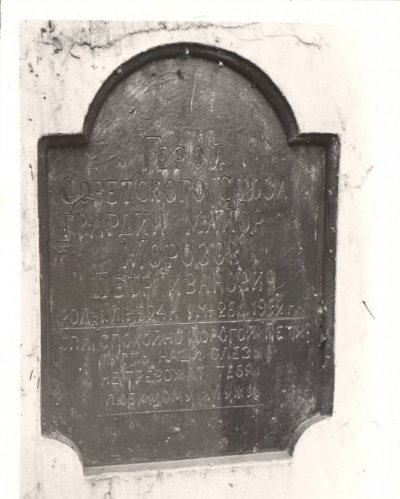 Герой
Советского Союза
гвардии майор
Морозов
Петр Иванович
род. ум.
спи спокойно дорогой Петя
пусть наши слезы
не тревожат тебя
любимому мужу